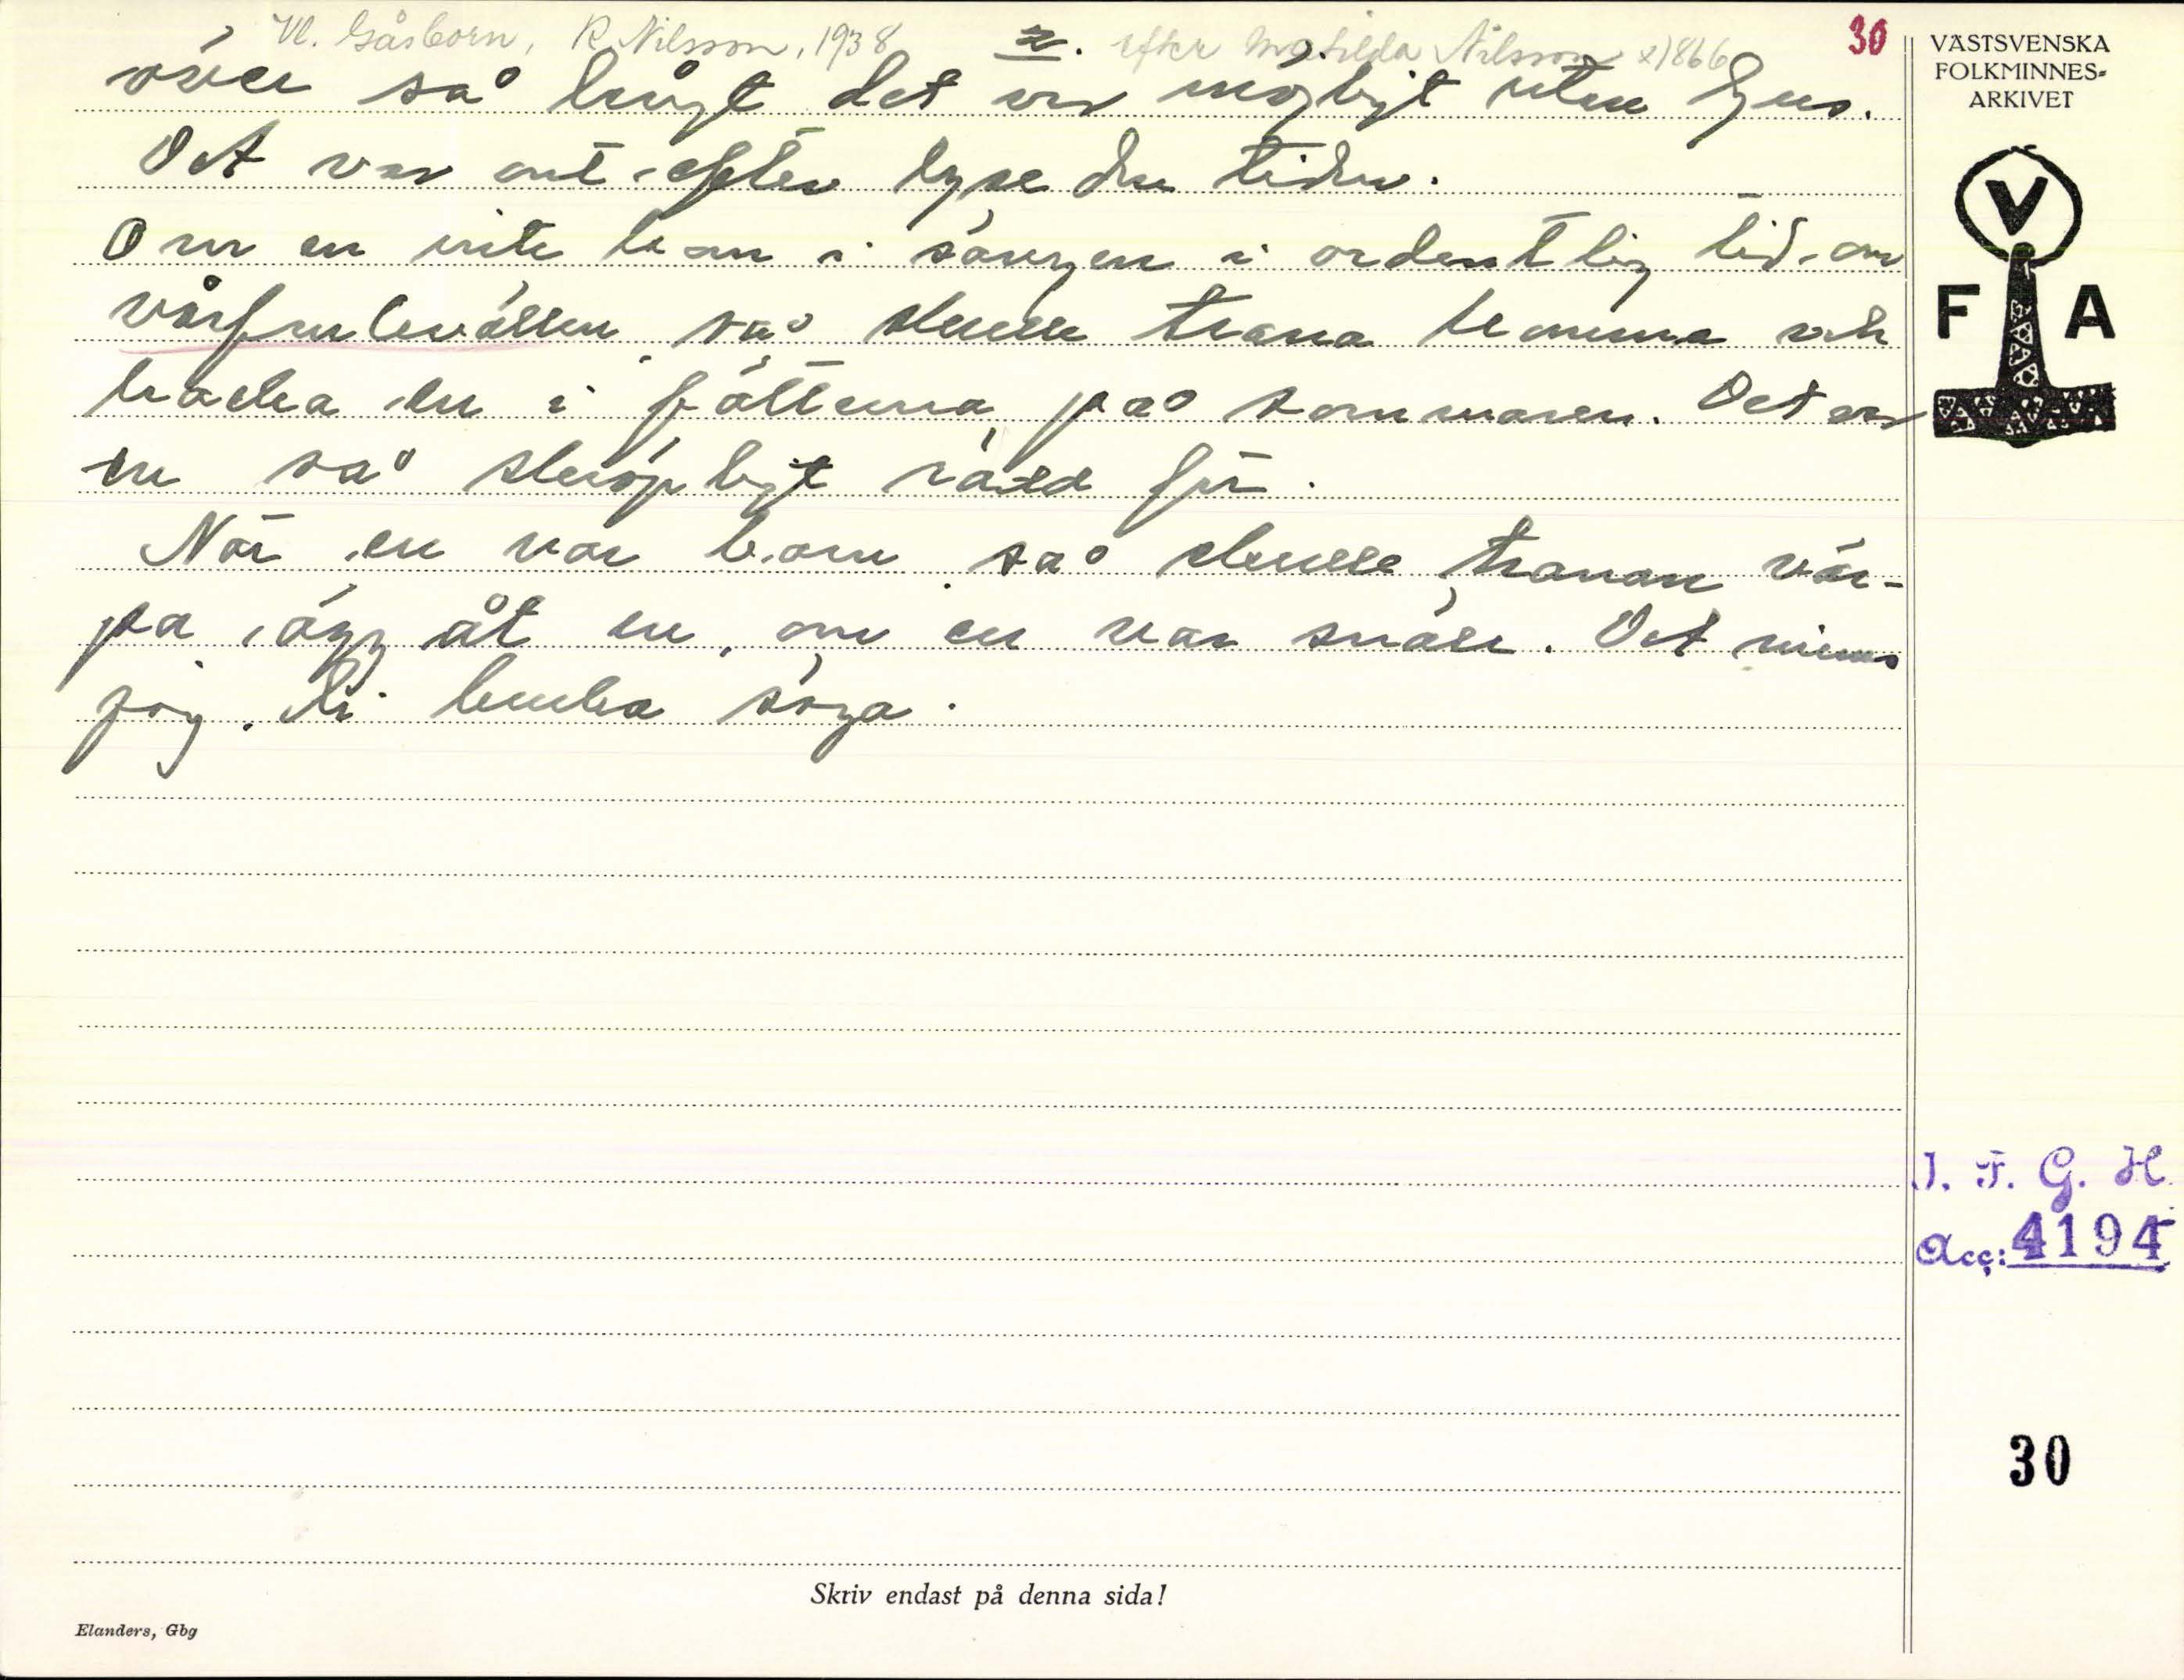 Vl. Gåsborn, R. Nilsson, 1938 2. efter Matilda Nilsson *1866 30
över så långt det var möjligt utan ljus.
Det var ont efter lyse den tiden.
Om en inte kom i sängen i ordentlig tid om
vårfrukvällen, så skulle trana komma och
hacka en i fötterna på sommaren. Det var
en så skröpligt rädd för.
När en var barn så skulle tranan vär-
pa ägg åt en, om en var snäll. Det minns
jag di bruka säga.
VÄSTSVENSKA
FOLKMINNES-
ARKIVET
V
F A
I. F. G. H.
Acc: 4194
30
Skriv endast på denna sida!
Elanders, Gbg